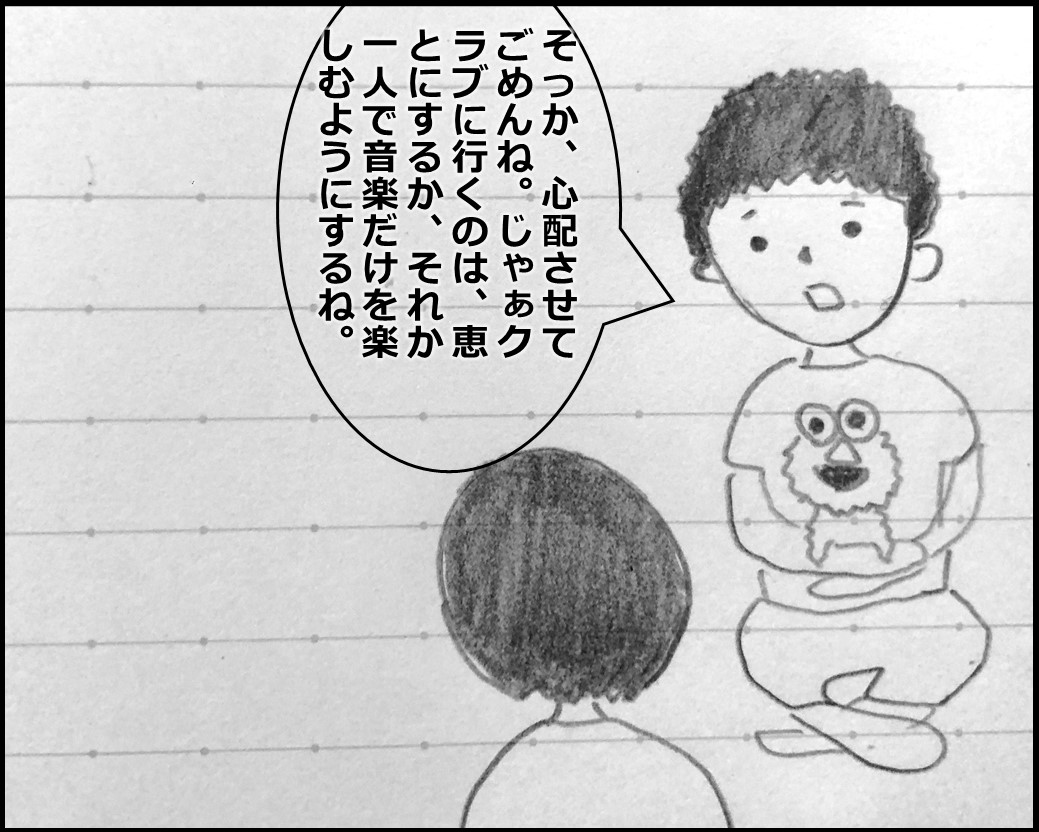 そっか、心配させて
ごめんね。じゃぁク
ラブに行くのは、恵
とにするか、それか
一人で音楽だけを楽
しむようにするね。